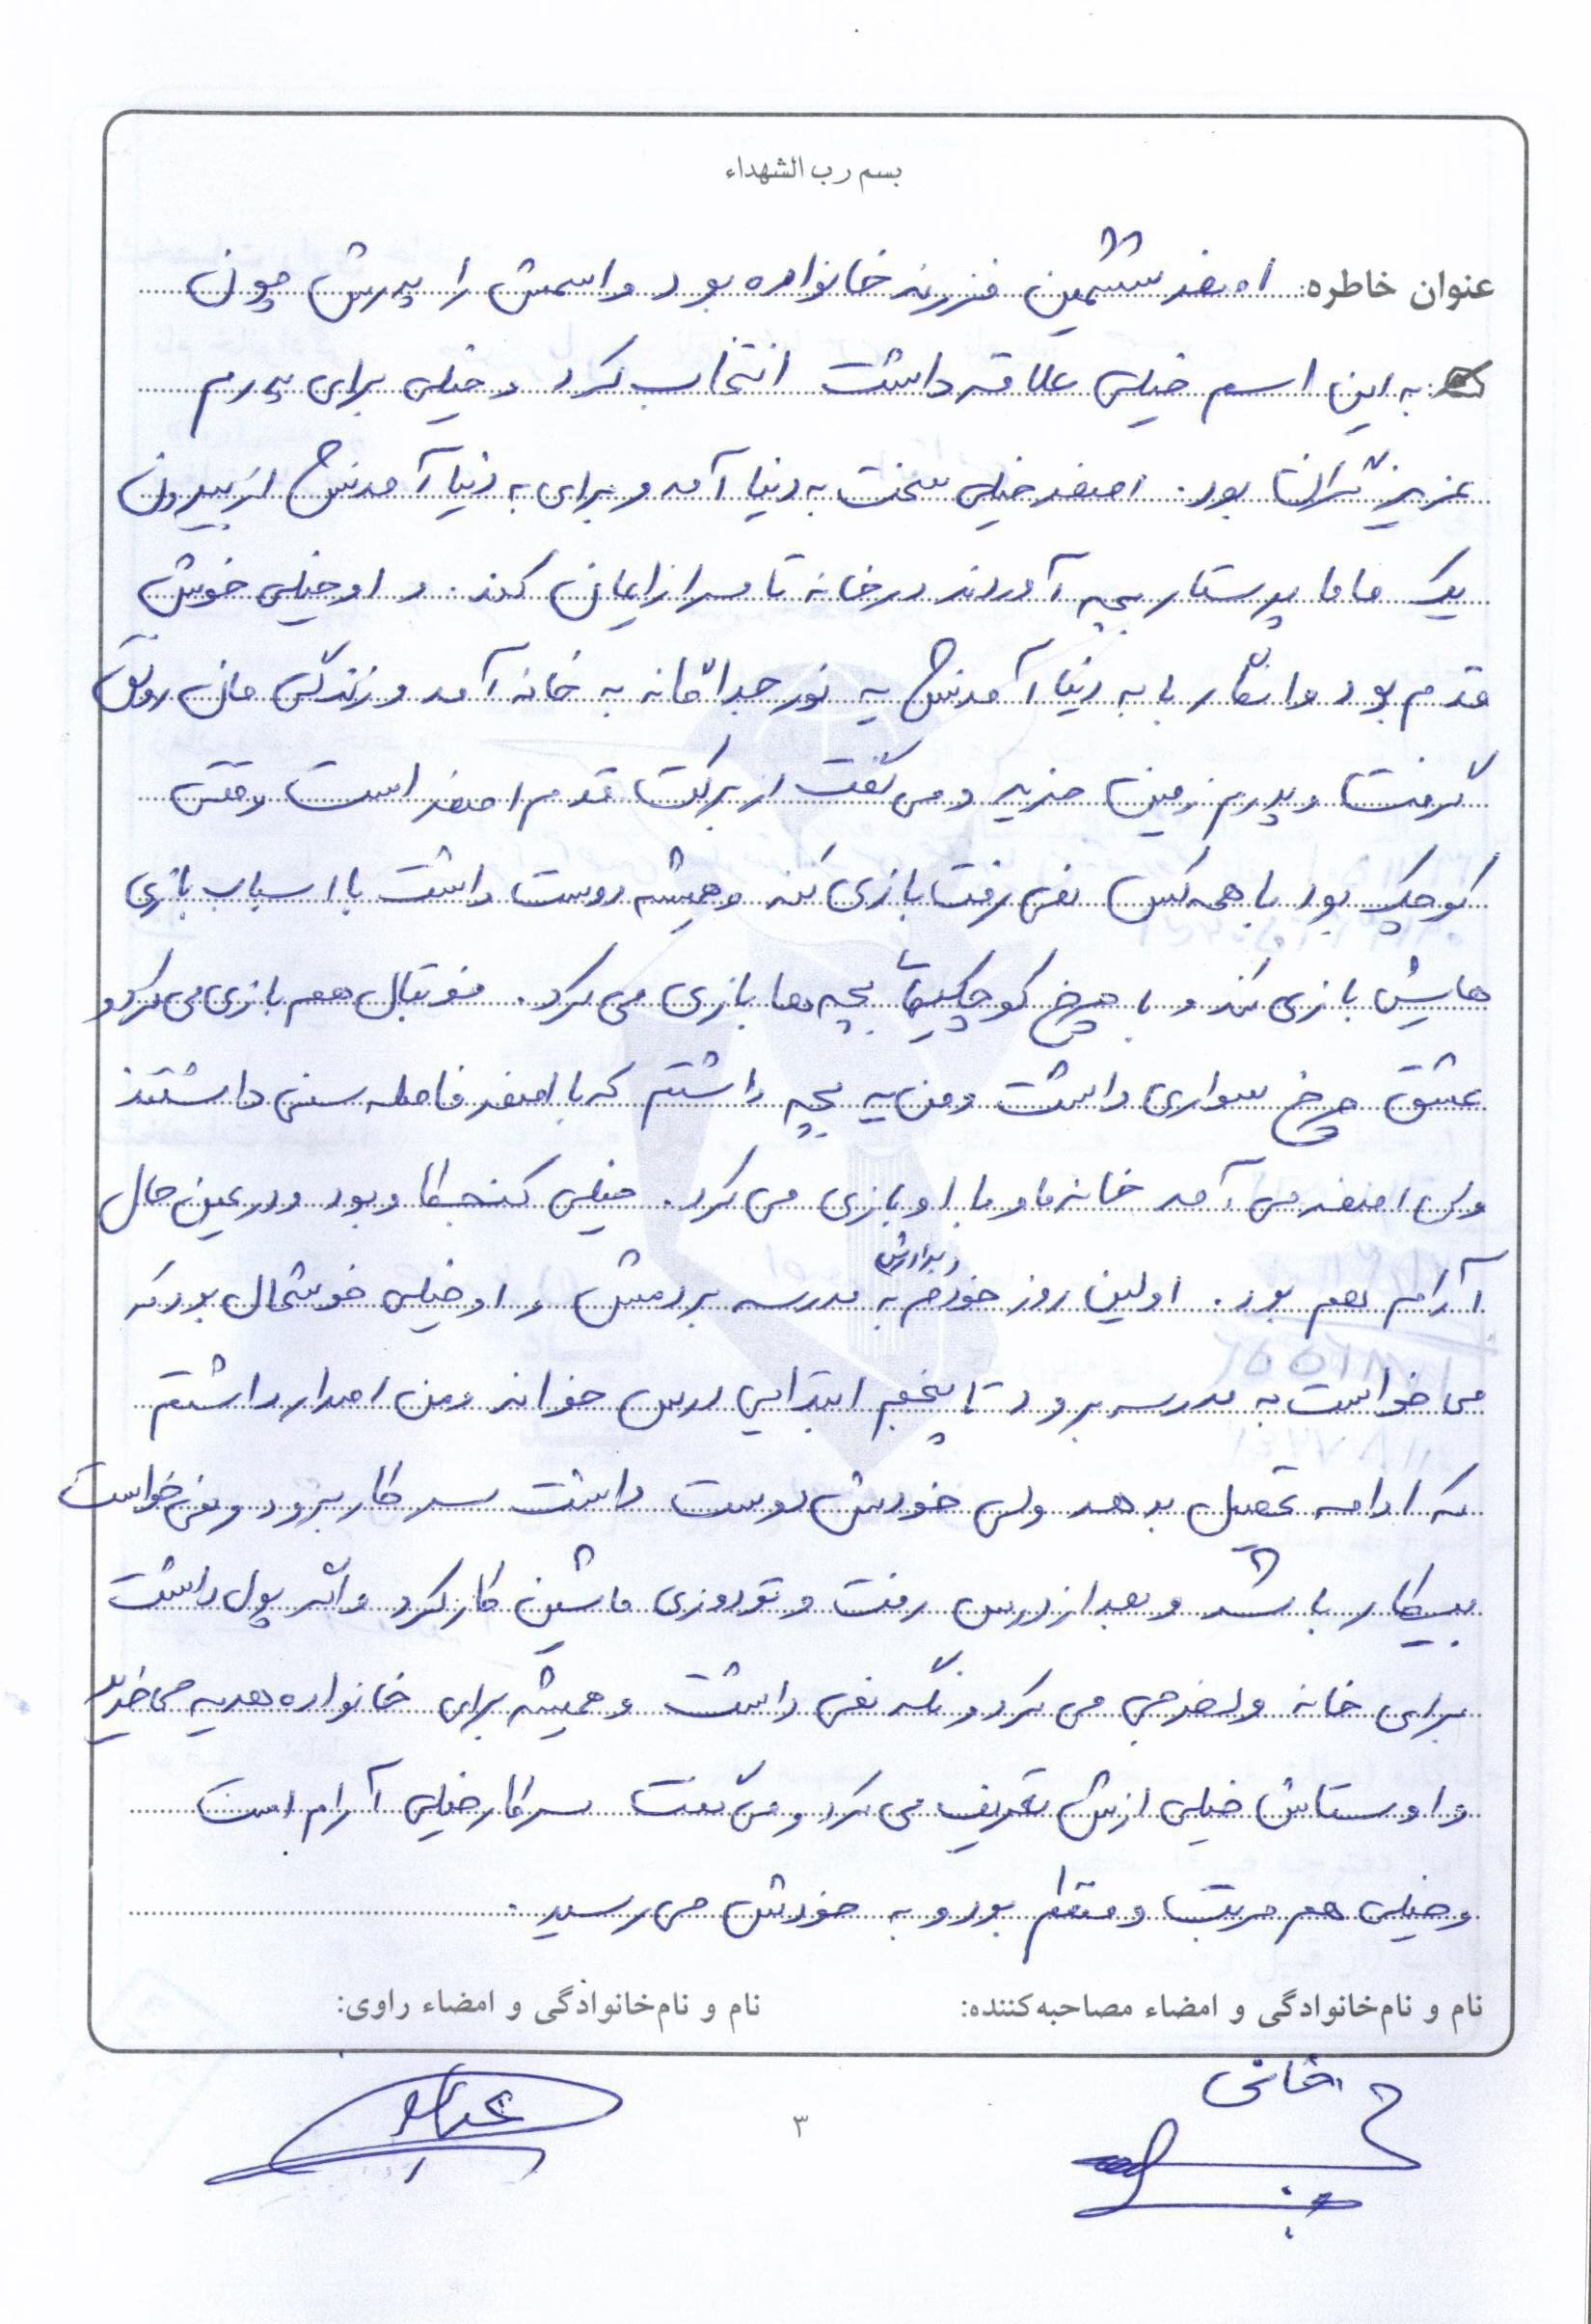 بسم رب الشهداء
عنوان خاطره: اصغر ششمین فرزند خانواده بود و اسمش را پدرش چون
به این اسم خیلی علاقه داشت انتخاب کرد و خیلی برای پدرم
عزیز گران بود. اصغر خیلی سخت به دنیا آمد و برای به دنیا آمدنش از بیرون
یک ماما پرستار بچه آوردند در خانه تا مرا زایمان کند. و او خیلی خوش
قدم بود و انگار با به دنیا آمدنش یه نور جداگانه به خانه آمد و زندگی مان رونق
گرفت و پدرم زمین خرید و می گفت از برکت قدم اصغر است وقتی
کوچک بود با همه کس نمی رفت بازی کند و همیشه دوست داشت با اسباب بازی
هایش بازی کند و با چرخ کوچکیها بچه ها بازی می کرد. فوتبال هم بازی می کرد و
عشق چرخ سواری داشت و من یه بچه داشتم که با اصغر فاصله سنی داشتند
ولی اصغر می آمد خانه ما و با او بازی می کرد. خیلی کنجکاو بود و در عین حال
آرام هم بود. اولین روز خودم و برادرش به مدرسه بردمش و او خیلی خوشحال بود که
می خواست به مدرسه برود تا پنجم ابتدایی درس خواند و من اصرار داشتم
که ادامه تحصیل بدهد ولی خودش دوست داشت سر کار برود و نمی خواست
بیکار باشد و بعد از درس رفت و تودوزی ماشین کار کرد و اگر پول داشت
برای خانه ولخرجی می کرد و نگه نمی داشت و همیشه برای خانواده هدیه می خرید
و اوستاش خیلی ازش تعریف می کرد و می گفت سر کار خیلی آرام است
و خیلی هم مرتب و منظم بود و به خودش می رسید.
نام و نام‌خانوادگی و امضاء مصاحبه‌کننده: نام و نام‌خانوادگی و امضاء راوی:
خانی
۳